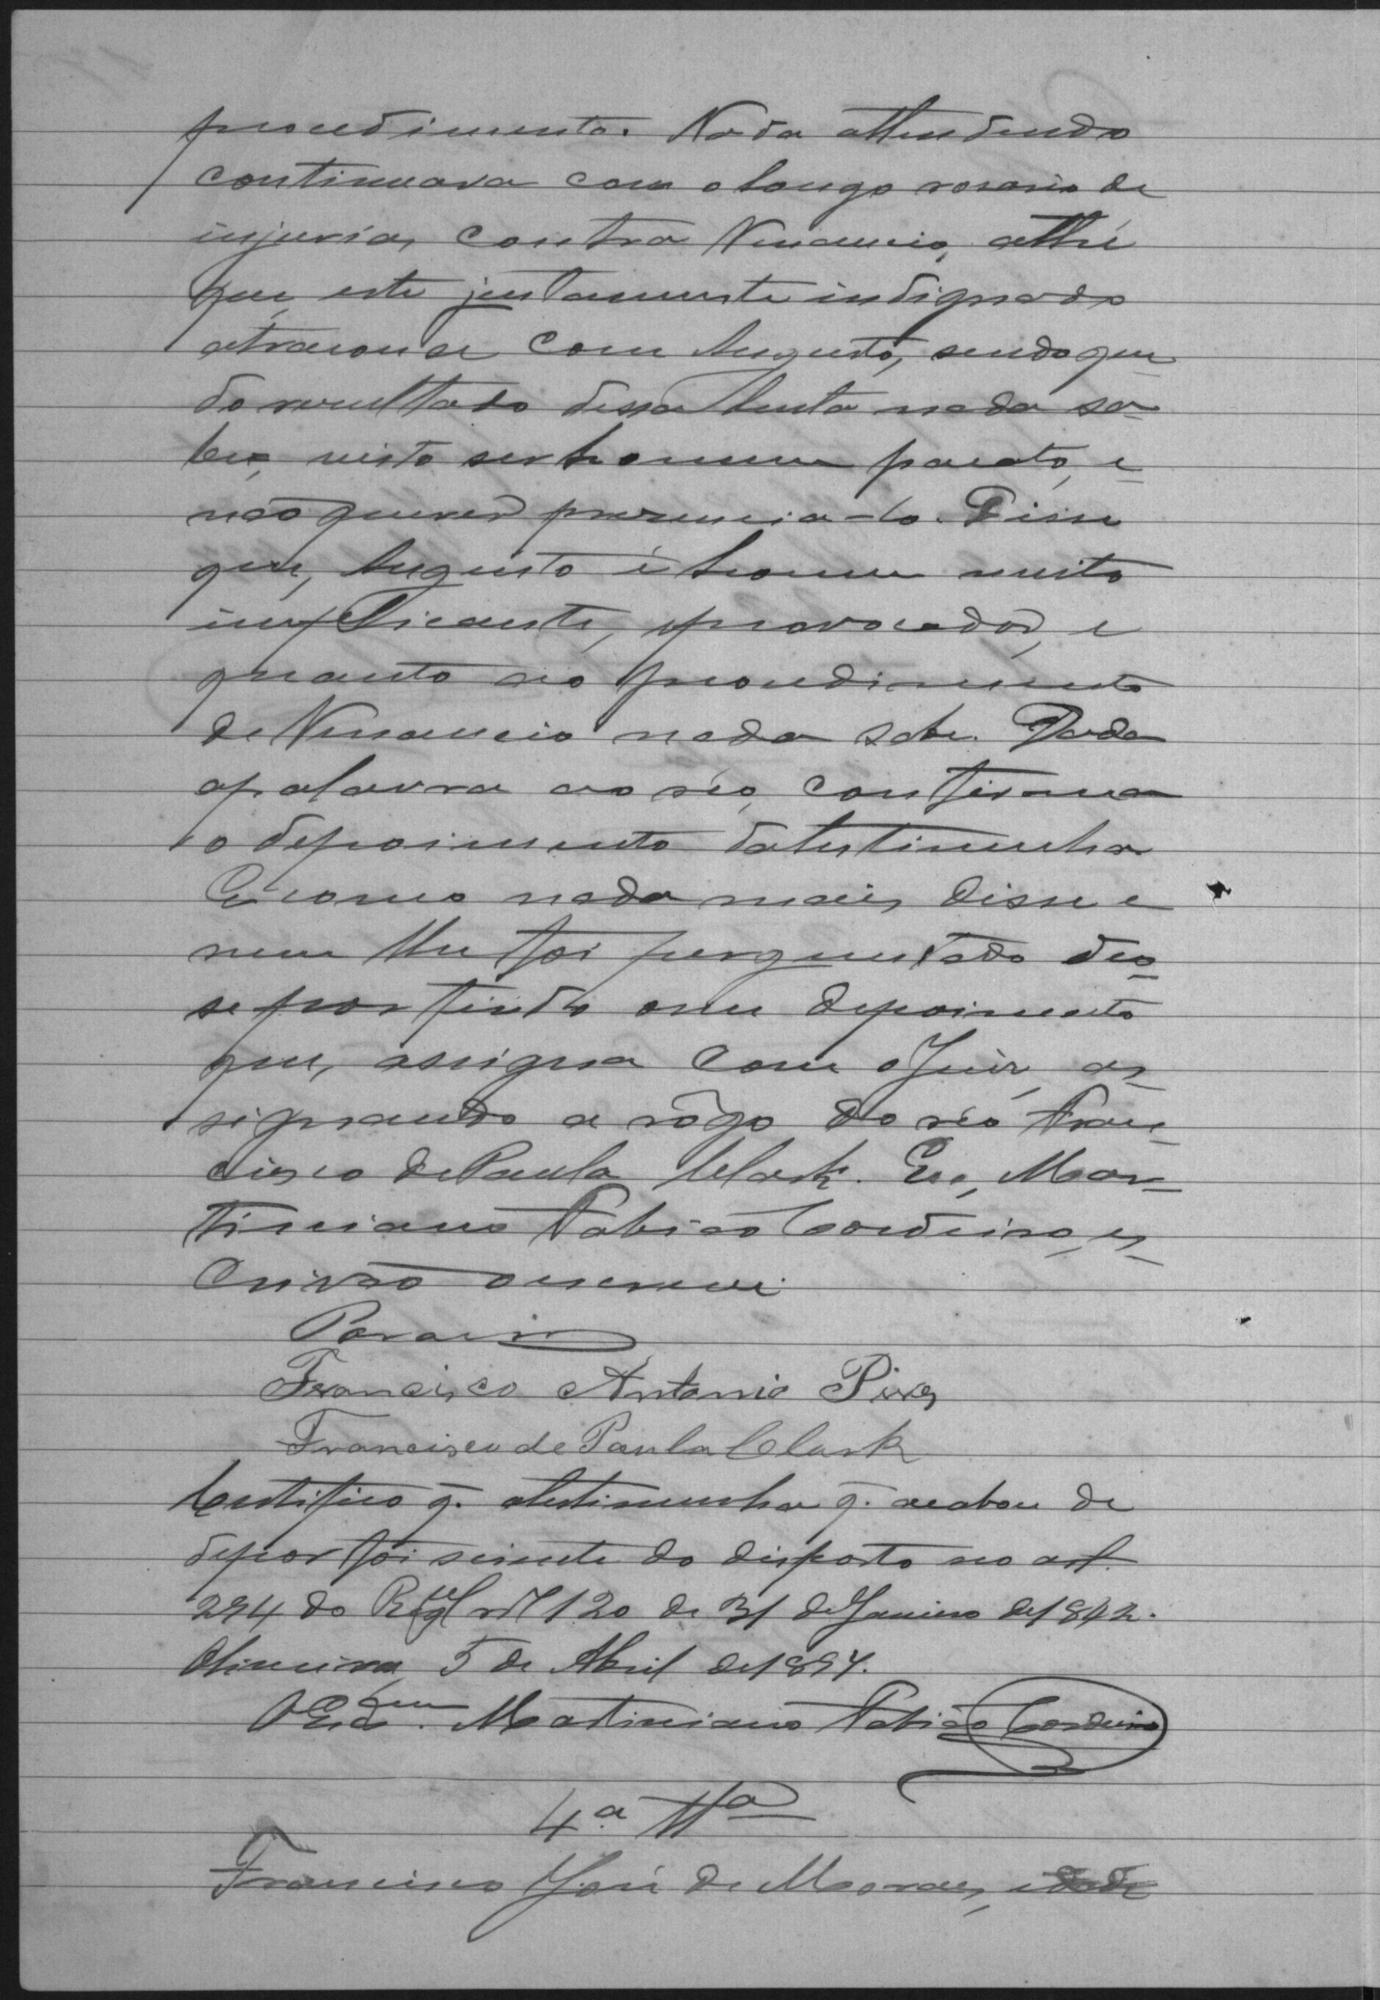 procedimento. Nada attendendo
continuava com o longo rosario de
injurias contra Venancio, athé
que, este justamente indignado
atracou-se com Augusto, sendo que
do resultado dessa lucta nada sa-
be, visto ser homem pacato, e
não querer presencia-lo. Disse
que, Augusto é homem muito
implicante, provocador, e
quanto ao procedimento
de Venancio nada sabe. Dada
a palavra ao réo, confirma
o depoimento da testimunha
E como nada mais disse e
nem lhe foi perguntado deo-
se por findo o seu depoimento
que, assigna com o Juiz, as-
signando a rôgo do réo Fran-
cisco de Paula Clark. Eu, Mar-
timiano Fabião Cordeiro, es-
crivão o escrevi.
Francisco Antonio Pires
Francisco de Paula Clark
Certifico q. a testimunha q. acabou de
depor foi sciente do disposto no art.
294 do Regul nº 120 de 31 de Janeiro de 1842.
Oliveira, 5 de Abril de 1894.
O Escam. Martimiano Fabião Cordeiro
4.a Tta
Francisco José de Moraes, idade